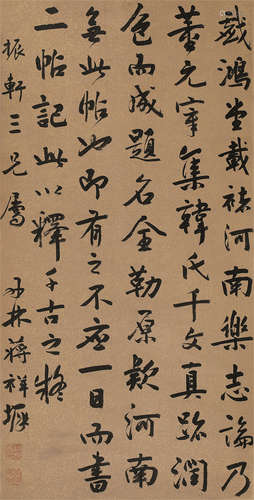 戏鸿堂载褚河南樂志論乃
董元宰集韓氏千文真跡潤
色而成題名全勒原款河南
無此帖也即有之不應一日而書
二帖記此以釋千古之疑
振軒三兄屬 子林蔣祥墀